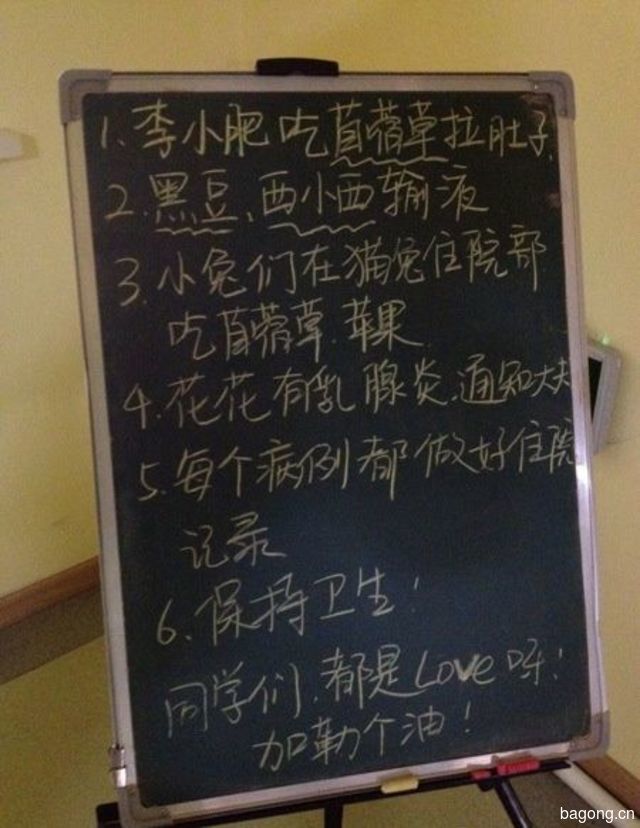 1. 李小肥吃苜蓿草拉肚子.
2. 黑豆、西小西输液
3. 小兔们在猫兔住院部
吃苜蓿草.苹果
4. 花花有乳腺炎.通知大夫
5. 每个病例都做好住院
记录
6. 保持卫生!
同学们.都是Love呀!
加勒个油!
bagong.cn